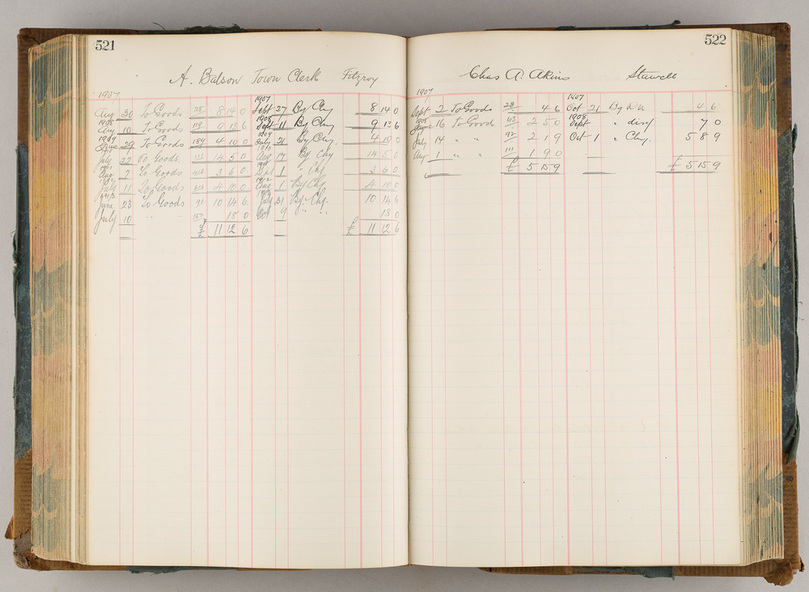 521
A. Balson Town Clerk Fitzroy
1907 1907
Aug 30 To Goods 28 8 14 0 Sept 27 By Chq 8 14 0
1908 1908
Aug 10 To Goods 118 9 13 6 Sept 11 By Chq 9 13 6
1909 1909
June 29 To Goods 189 4 10 0 21 By Chq 4 10 0
July 22 To Goods 14 5 0 Aug By Chq 14 5 0
Aug 2 To Goods 3 6 0 1 " Chq 3 6 0
1912
July 11 To Goods 4 10 0 Aug 1 By Chq 4 10 0
1913 1913
June 23 To Goods 91 10 14 6 July 31 By Chq 10 14 6
July 10 " " 18 0 9 " " 18 0
£ 11 12 6 £ 11 12 6
522
Chas A. Akins Stawell
1907 1907
Sept 2 To Goods 28 4 6 Oct 21 By 4 6
1908 1908
June 16 To Goods 63 2 5 0 Sept " disct 7 0
July 14 " " 92 2 1 9 Oct 1 " Chq. 5 8 9
Aug 1 " " 111 1 9 0
£ 5 15 9 £ 5 15 9